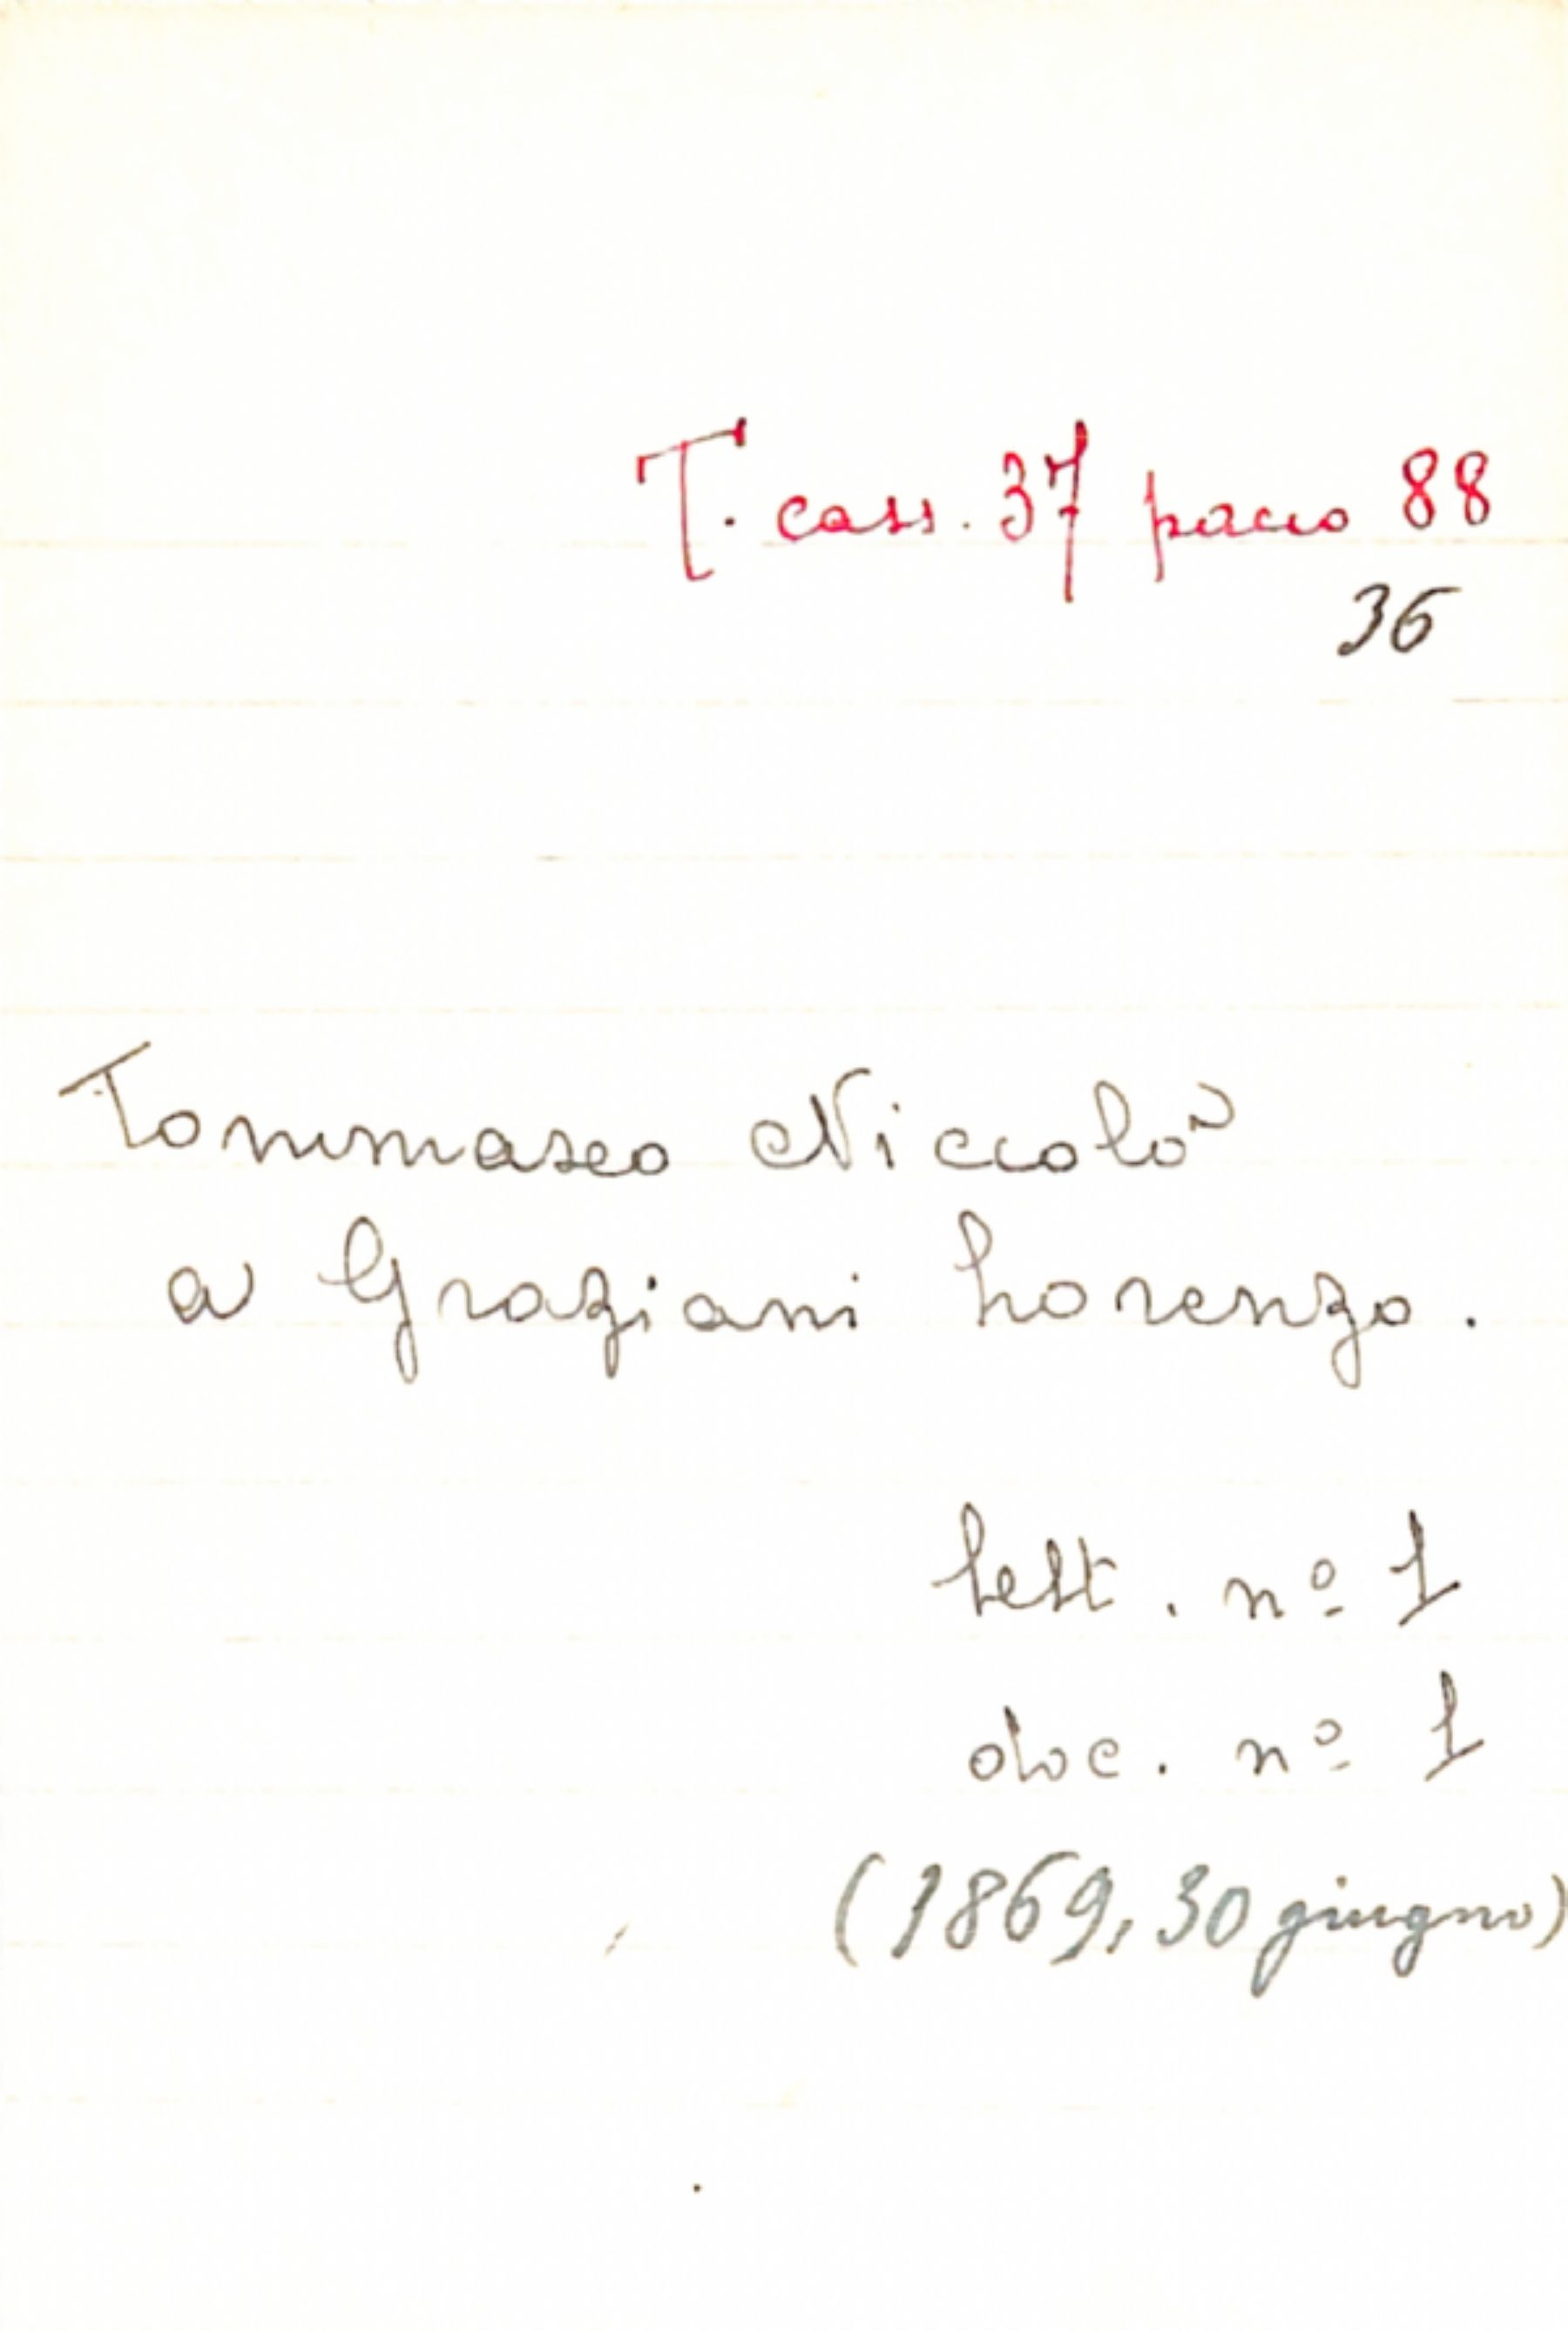 T. cass. 37 pacco 88
36
Tommaseo Niccolò
a Graziani Lorenzo.
Lett. nº 1
doc. nº 1
(1869, 30 giugno)